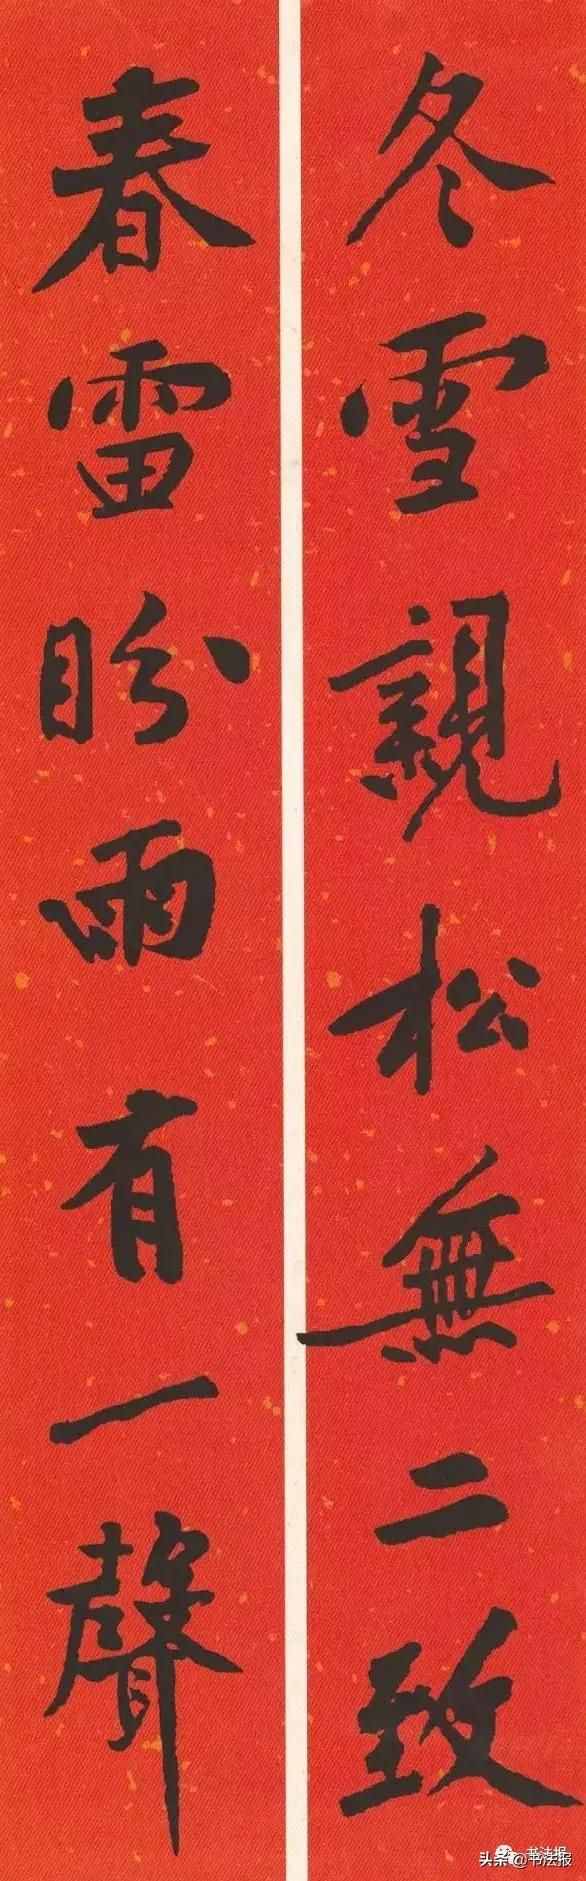 冬雪親松無二致
春雷盼雨有一聲
书法报
头条@书法报